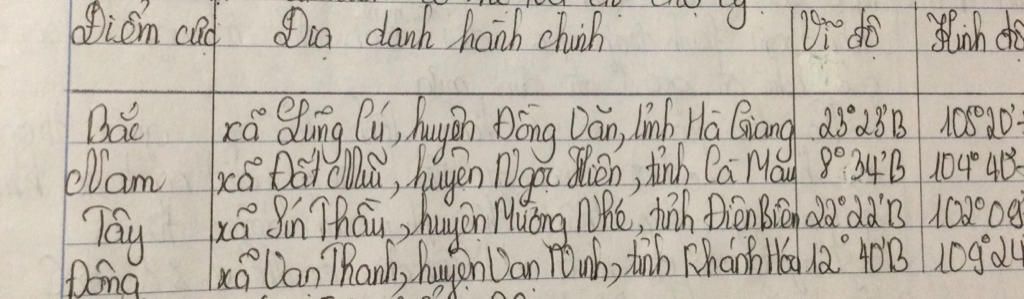 Điểm cực Địa danh hành chính Vĩ độ Kinh độ
Bắc xã Lũng Cú, huyện Đồng Văn, tỉnh Hà Giang 23°23'B 105°20'
Nam xã Đất Mũi, huyện Ngọc Hiển, tỉnh Cà Mau 8°34'B 104°40'
Tây xã Sín Thầu, huyện Mường Nhé, tỉnh Điện Biên 22°22'B 102°09'
Đông xã Vạn Thạnh, huyện Vạn Ninh, tỉnh Khánh Hoà 12°40'B 109°24